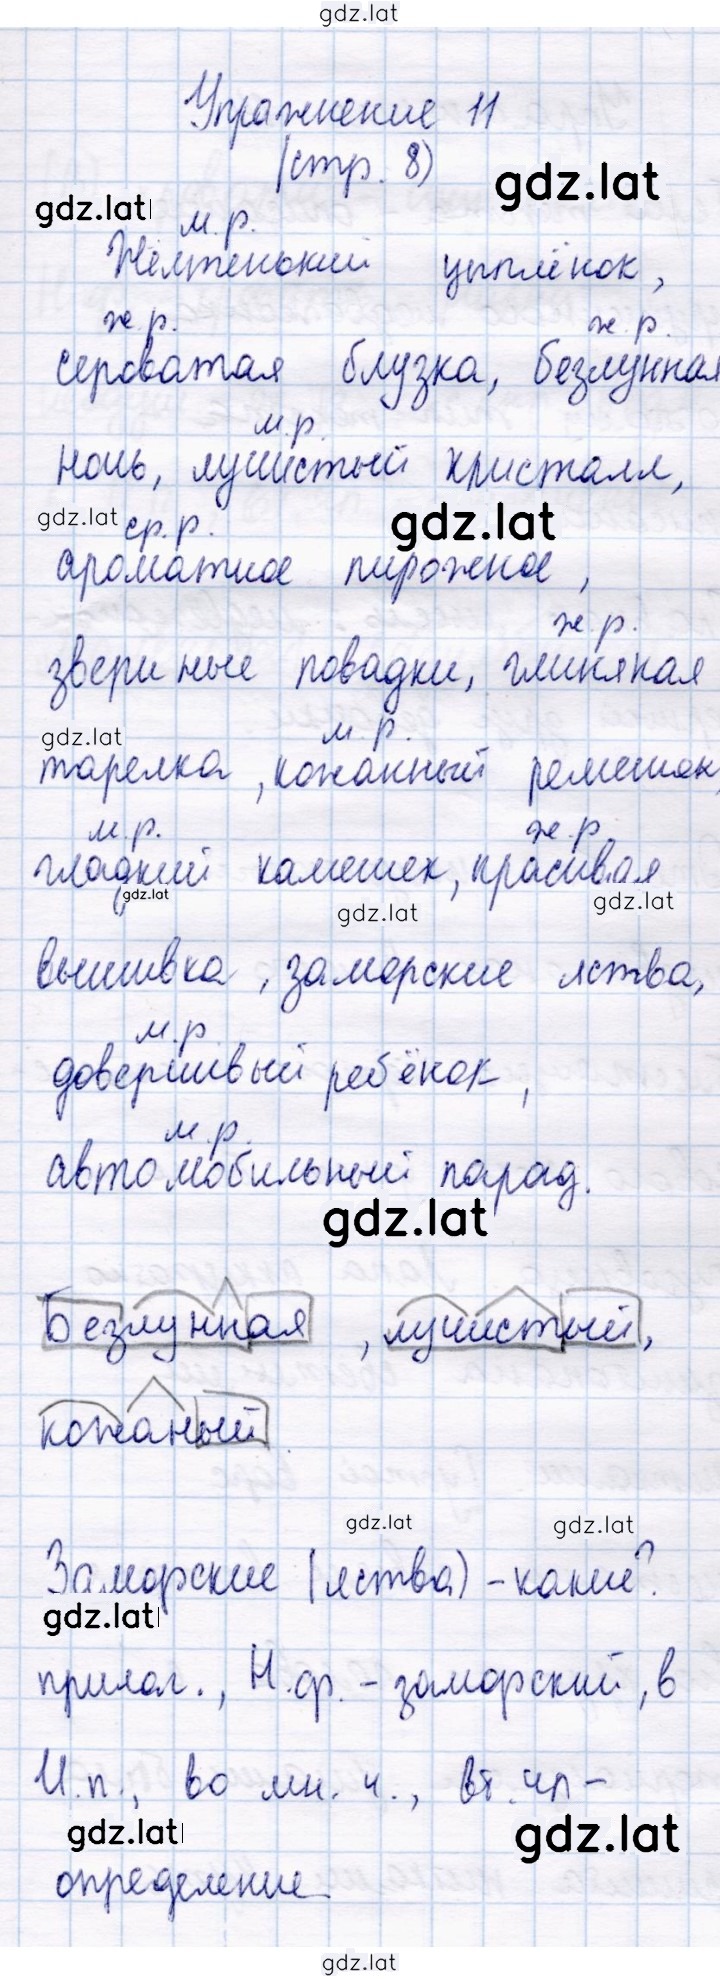 gdz.lat
Упражнение 11
(стр. 8)
gdz.lat
gdz.lat
м.р.
Жёлтенький цыплёнок,
ж.р. ж.р.
сероватая блузка, безлунная
м.р.
ночь, лучистый кристалл,
gdz.lat
ср.р.
gdz.lat
ароматное пирожное,
ж.р.
звериные повадки, глиняная
gdz.lat
м.р.
тарелка, кожанный ремешок,
м.р. ж.р.
гладкий камешек, красивая
gdz.lat
gdz.lat
gdz.lat
вышивка, заморские яства,
м.р.
доверчивый ребёнок,
м.р.
автомобильный парад.
gdz.lat
Безлунная, лучистый,
кожаный
gdz.lat
gdz.lat
Заморские (яства) - какие?
gdz.lat
прилаг., Н.ф. - заморский, в
И.п., во мн. ч., вт. чл -
gdz.lat
gdz.lat
определение
gdz.lat